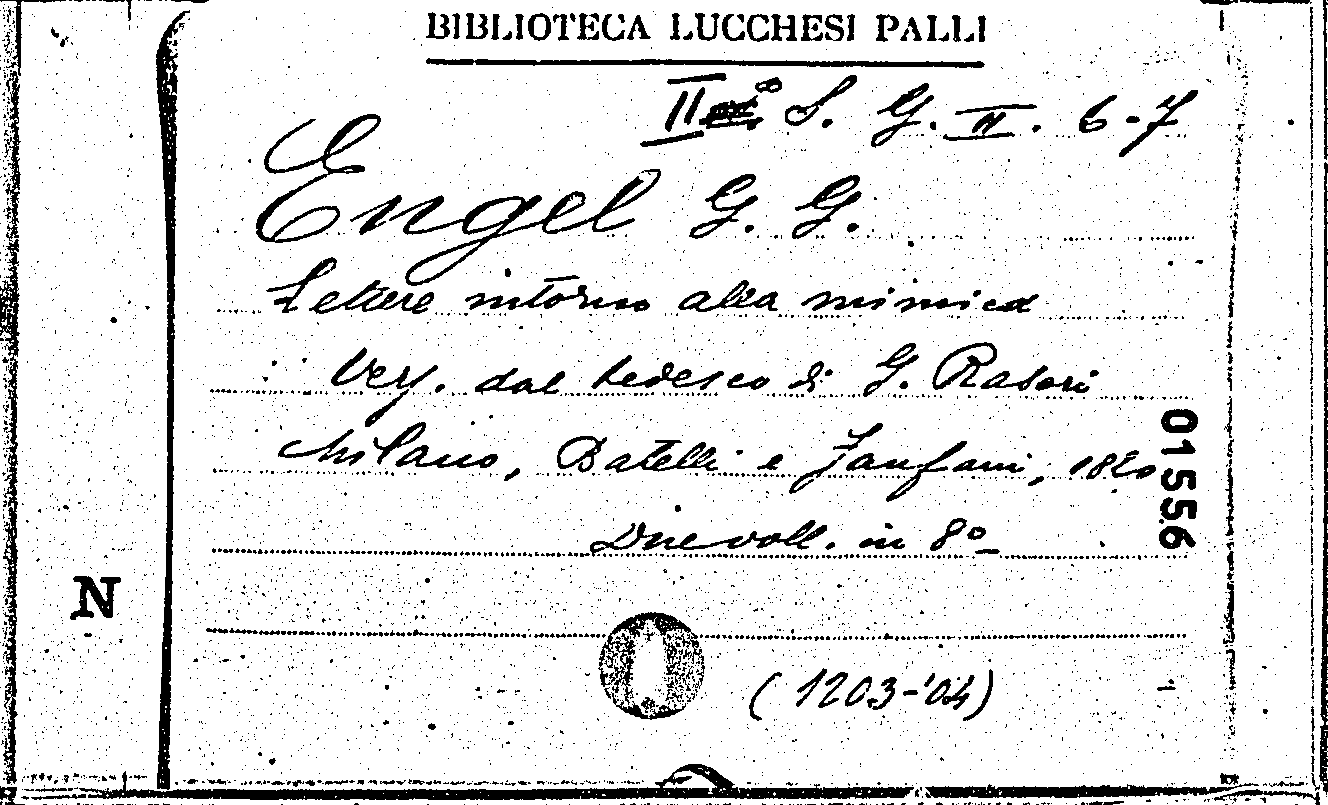 BIBLIOTECA LUCCHESI PALLI
II S. G. II. 6-7
Engel G. G.
Lettere intorno alla mimica
Vers. dal tedesco di G. Rasori
Milano, Batelli e Fanfani, 1820
Due voll. in 8º
01556
N
(1203-'04)